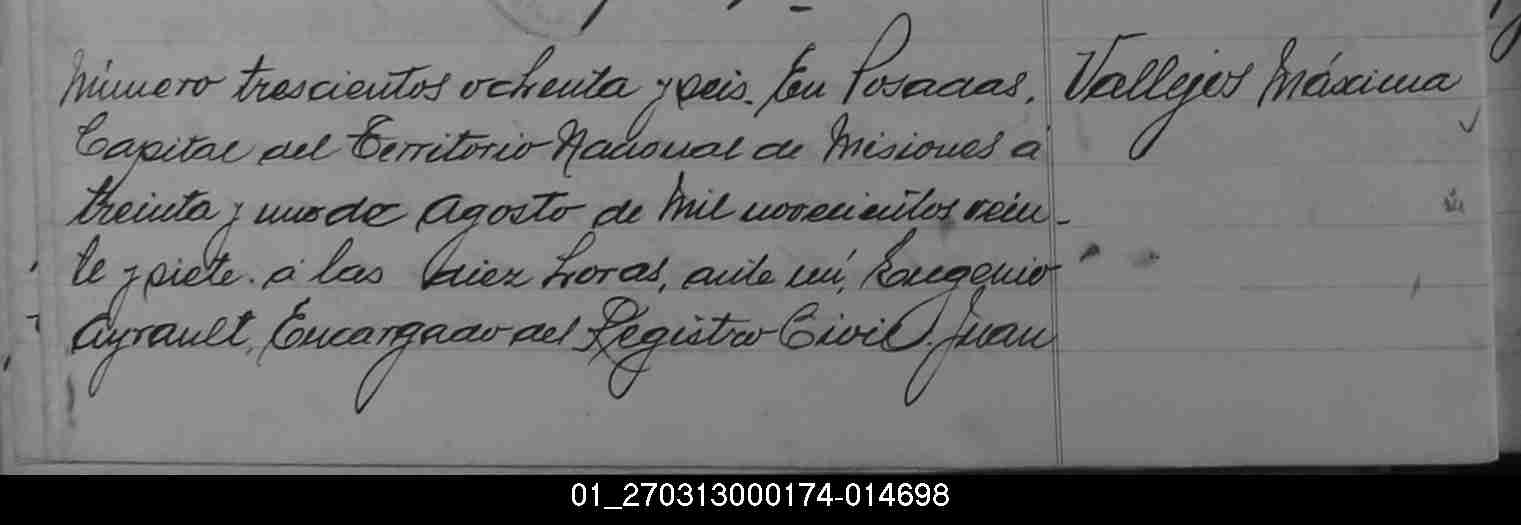 Número trescientos ochenta y seis. En Posadas,
Capital del Territorio Nacional de Misiones a
treinta y uno de Agosto de Mil novecientos vein-
te y siete. a las diez horas, ante mí, Eugenio
Ayrault, Encargado del Registro Civil. Juan
Vallejos Máxima
01_270313000174-014698